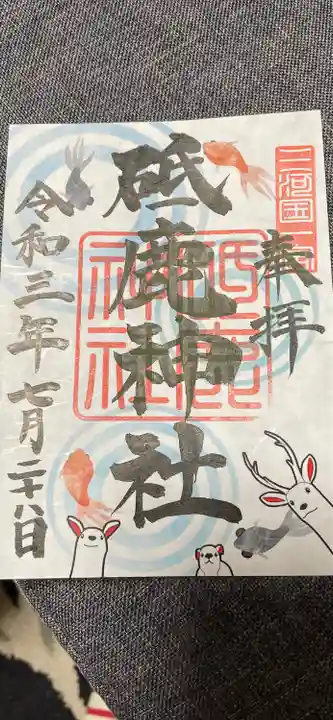 三河国一宮
奉拝
砥鹿神社
砥鹿
神社
令和三年七月二十八日